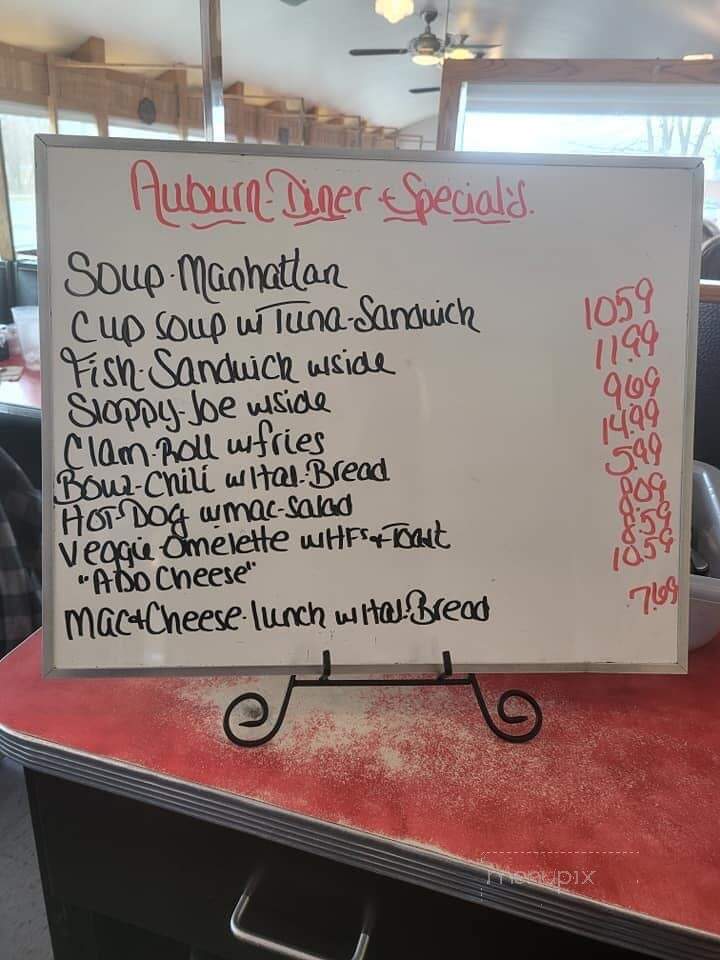 Auburn-Diner Special's.
Soup-Manhattan
Cup soup w Tuna-Sandwich 1059
Fish-Sandwich wside 1199
Sloppy-Joe wside 969
Clam-Roll w fries 1499
Bowl-Chili w Ital-Bread 599
Hot-Dog w mac-salad 809
Veggie-Omelette w HFs+Toast 8.59
"ADD Cheese" 10.59
Mac+Cheese-lunch w Ital-Bread 769
menupix